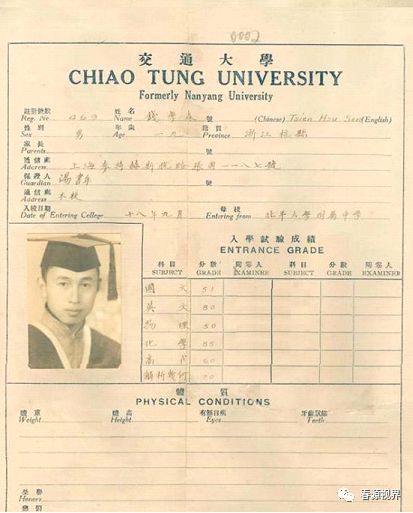 0002
交通大學
CHIAO TUNG UNIVERSITY
Formerly Nanyang University
註冊號數 469 姓名 錢學森 號
Reg. No Name (Chinese) Tsien Hsu Sen (English)
性別 男 年歲 一九 籍貫 浙江杭縣
Sex Age Province
家長 號
Parents
通信處 上海麥特赫斯脫路張園一一八七號
Address
保證人 湯書年 號
Guardian
通信處 本校
Address
入校日期 十八年九月 母校
Date of Entering College Entering from 北平大學附屬中學
入學試驗成績
ENTRANCE GRADE
科目 分數 閱卷人 科目 分數 閱卷人
SUBJECT GRADE EXAMINER SUBJECT GRADE EXAMINER
國文 51
英文 80
物理 50
化學 85
高代 60
解析幾何 70
體質
PHYSICAL CONDITIONS
體重 體高 有無目疾 牙齒狀態
Weight Height Eyes Teeth
榮譽
Honors
懲罰
春源视界